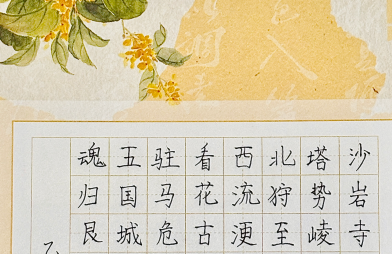 沙岩寺
塔势崚
北狩至
西流浭
看花古
驻马危
五国城
魂归艮